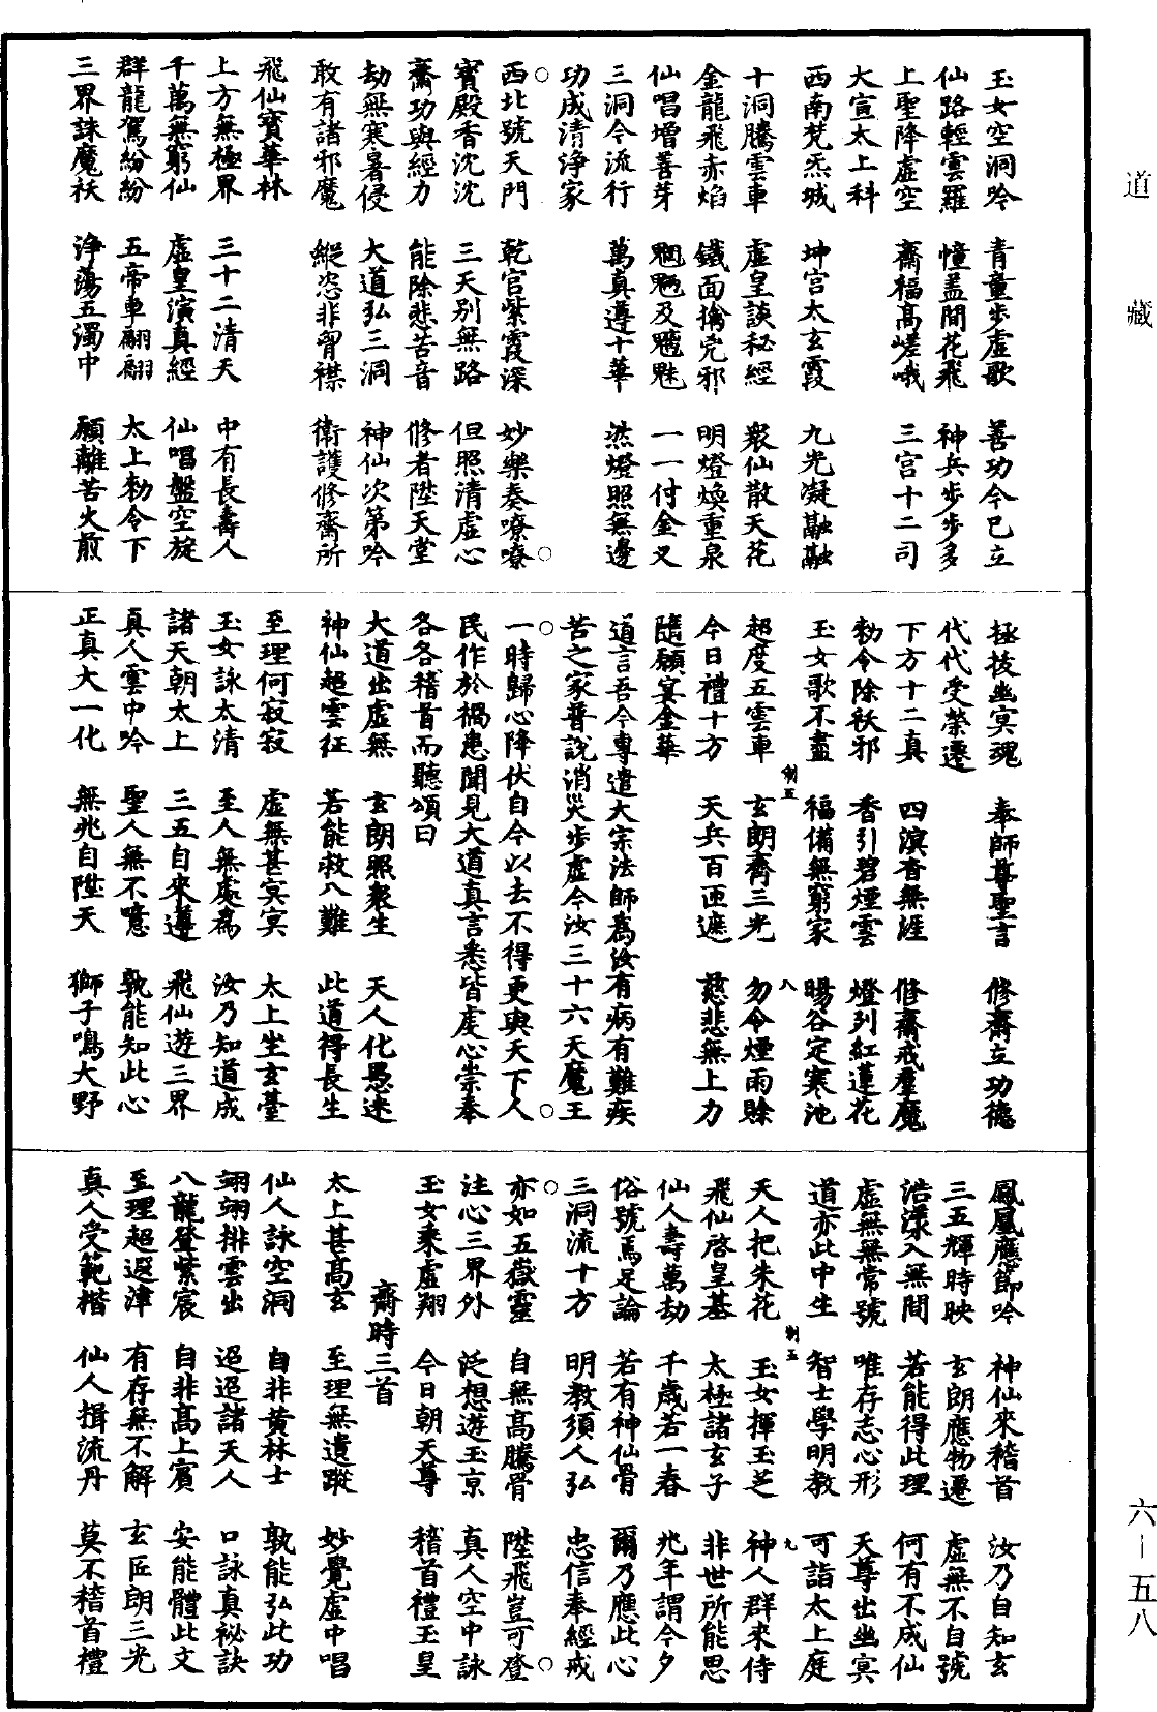 道藏
玉女空洞吟 青童步虛歌 善功今已立
仙路輕雲羅 幢蓋間花飛 神兵步步多
上聖降虛空 齋福高嵯峨 三官十二司
大宣太上科
西南梵炁城 坤宮太玄霞 九光凝融融
十洞騰雲車 虛皇談秘經 眾仙散天花
金龍飛赤焰 鐵面擒兇邪 明燈煥重泉
仙唱增善芽 魍魎及魑魅 一一付金叉
三洞今流行 萬真遵十華 然燈照無邊
功成清淨家
西北號天門 乾宮紫霞深 妙樂奏嘹嘹
寶殿香沈沈 三天別無路 但照清虛心
齋功與經力 能除悲苦音 修者陞天堂
劫無寒暑侵 大道弘三洞 神仙次第吟
敢有諸邪魔 縱恣非胷襟 衛護修齋所
飛仙寶華林
上方無極界 三十二清天 中有長壽人
千萬無窮仙 虛皇演真經 仙唱盤空旋
群龍駕紛紛 五帝車翩翩 太上勑令下
三界誅魔袄 淨蕩五濁中 願離苦火煎
拯拔幽冥魂 奉師尊聖言 修齋立功德
代代受榮遷
下方十二真 四溟杳無涯 修齋戒羣魔
勑令除袄邪 香引碧煙雲 燈列紅蓮花
玉女歌不盡 福備無窮家 暘谷定寒池
制五 八
超度五雲車 玄朗齊三光 勿令煙雨賖
今日禮十方 天兵百匝遮 慈悲無上力
隨願宴金華
道言吾今專遣大宗法師為汝有病有難疾
苦之家普說消災步虛令汝三十六天魔王
一時歸心降伏自今以去不得更與天下人
民作於禍患聞見大道真言悉皆虔心崇奉
各各稽首而聽頌曰
大道出虛無 玄朗照衆生 天人化愚迷
神仙超雲征 若能救八難 此道得長生
至理何寂寂 虛無甚冥冥 太上坐玄臺
玉女詠太清 至人無處為 汝乃知道成
諸天朝太上 三五自來遵 飛仙遊三界
真人雲中吟 聖人無不憶 孰能知此心
正真大一化 無兆自陞天 獅子鳴大野
鳳凰應節吟 神仙來稽首 汝乃自知玄
三五輝時映 玄朗應物遷 虛無不自號
浩漾入無間 若能得此理 何有不成仙
虛無無常號 唯存志心形 天尊出幽冥
道亦此中生 智士學明教 可詣太上庭
制五 九
天人把朱花 玉女揮玉芝 神人群來侍
飛仙啓皇基 太極諸玄子 非世所能思
仙人壽萬劫 千歲若一春 兆年謂今夕
俗號焉足論 若有神仙骨 爾乃應此心
三洞流十方 明教須人弘 忠信奉經戒
亦如五嶽靈 自無高騰骨 陞飛豈可登
注心三界外 泛想遊玉京 真人空中詠
玉女乘虛翔 今日朝天尊 稽首禮玉皇
齋時三首
太上甚高玄 至理無遺蹤 妙覺虛中唱
仙人詠空洞 自非黄林士 孰能弘此功
翊翊排雲出 迢迢諸天人 口詠真祕訣
八龍登紫宸 自非高上賓 安能體此文
至理超遐津 有存無不解 玄匠朗三光
真人受範楷 仙人揖流丹 莫不稽首禮
六－五八